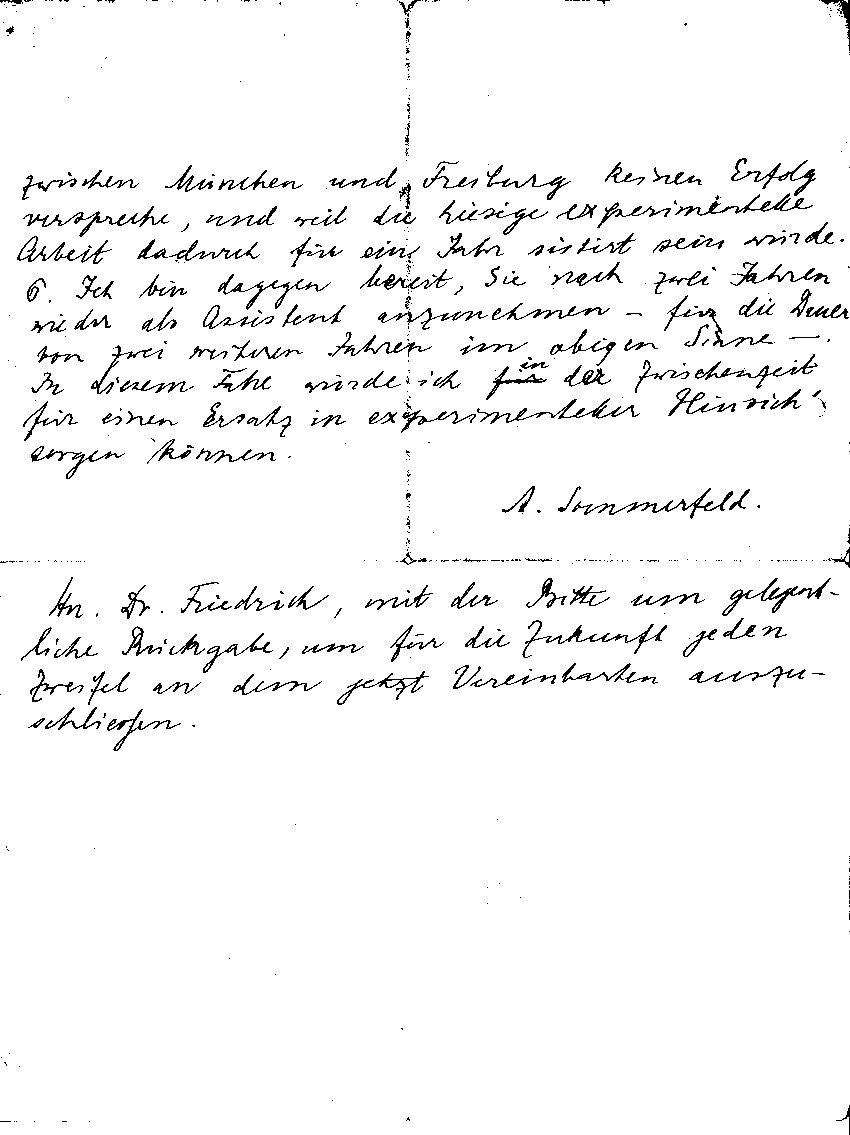 zwischen München und Freiburg keinen Erfolg
verspreche, und weil die hiesige experimentelle
Arbeit dadurch für ein Jahr sistirt sein würde.
6. Ich bin dagegen bereit, Sie nach zwei Jahren
wieder als Assistent anzunehmen – für die Dauer
von zwei weiteren Jahren im obigen Sinne –.
In diesem Falle würde ich für in der Zwischenzeit
für einen Ersatz in experimenteller Hinsich
sorgen können.
A. Sommerfeld.
Hn. Dr. Friedrich, mit der Bitte um gelegent-
liche Rückgabe, um für die Zukunft jeden
Zweifel an dem jetzt Vereinbarten auszu-
schliessen.